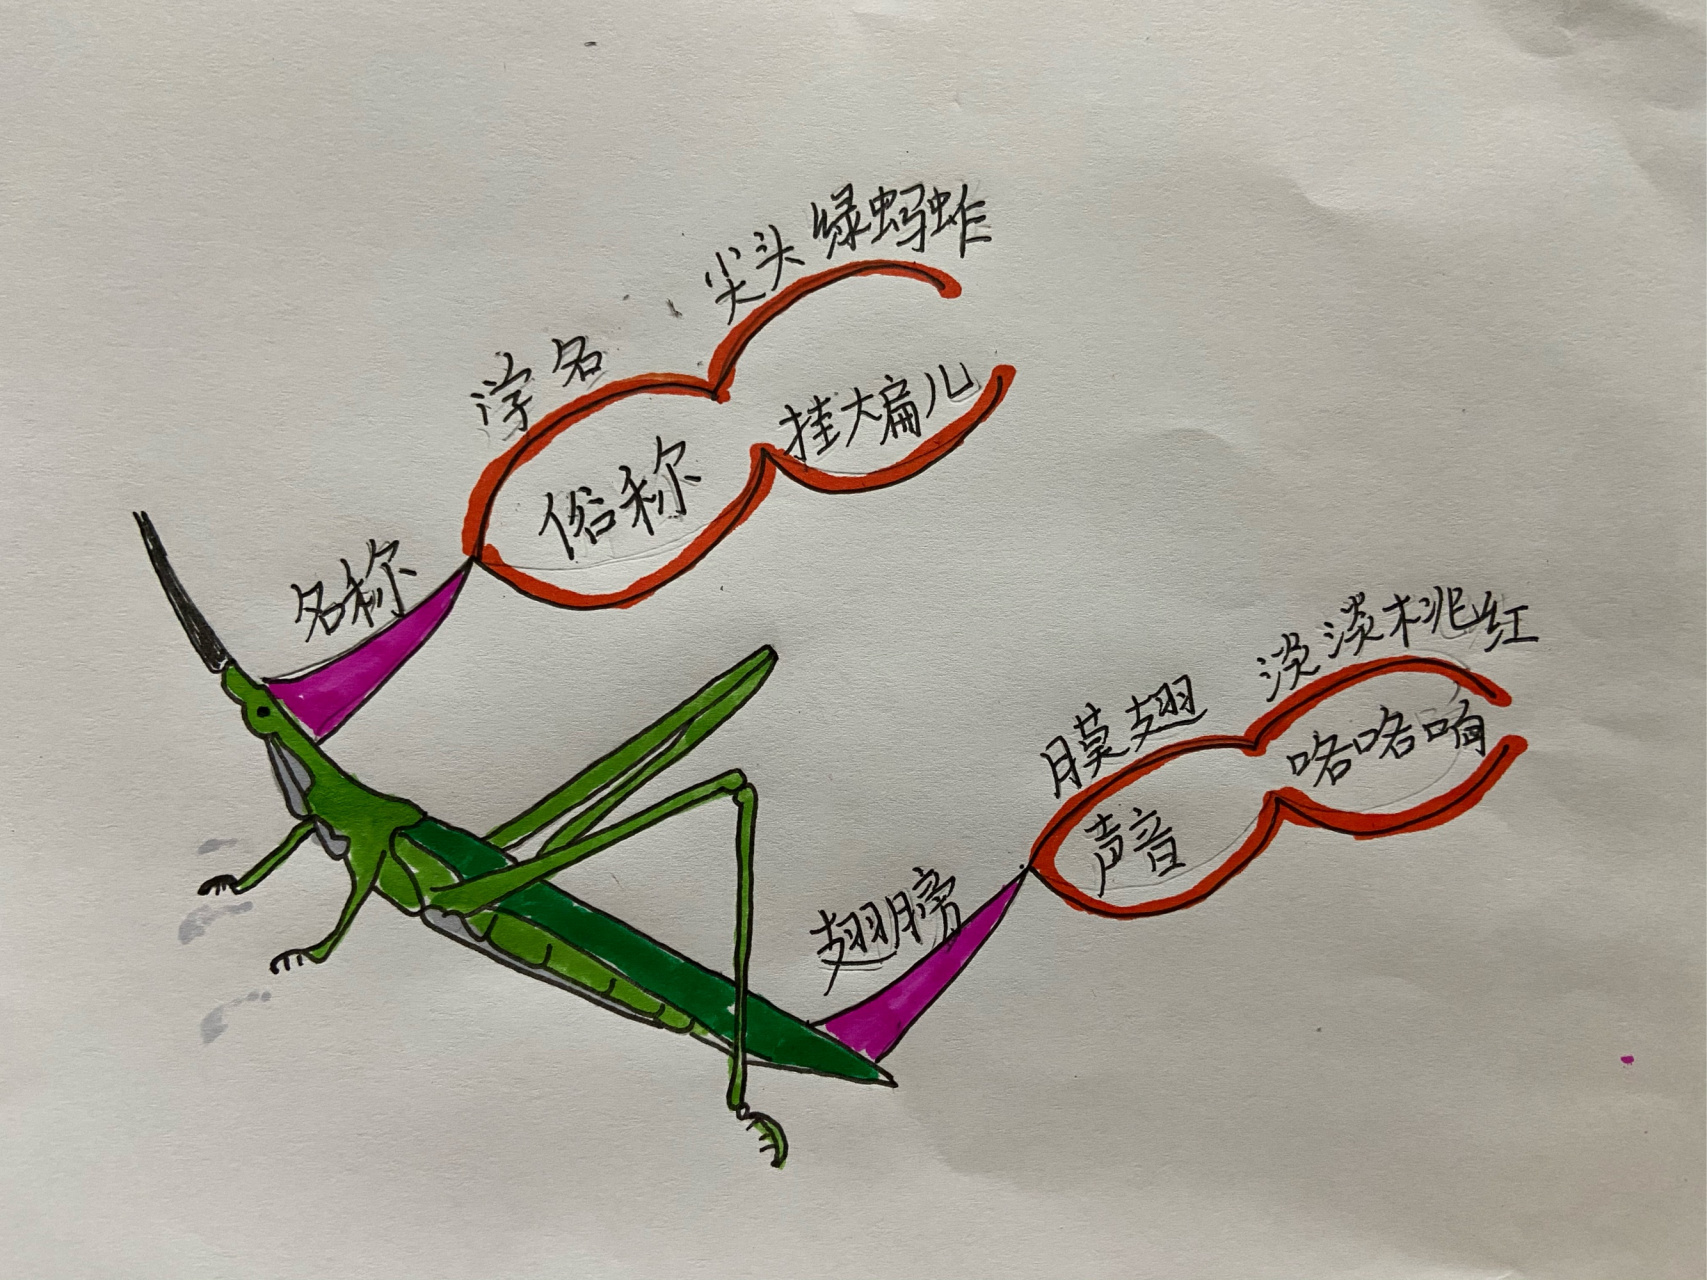 名称
学名
尖头绿蚂蚱
俗称
挂大扁儿
翅膀
膜翅
淡淡桃红
声音
咯咯响